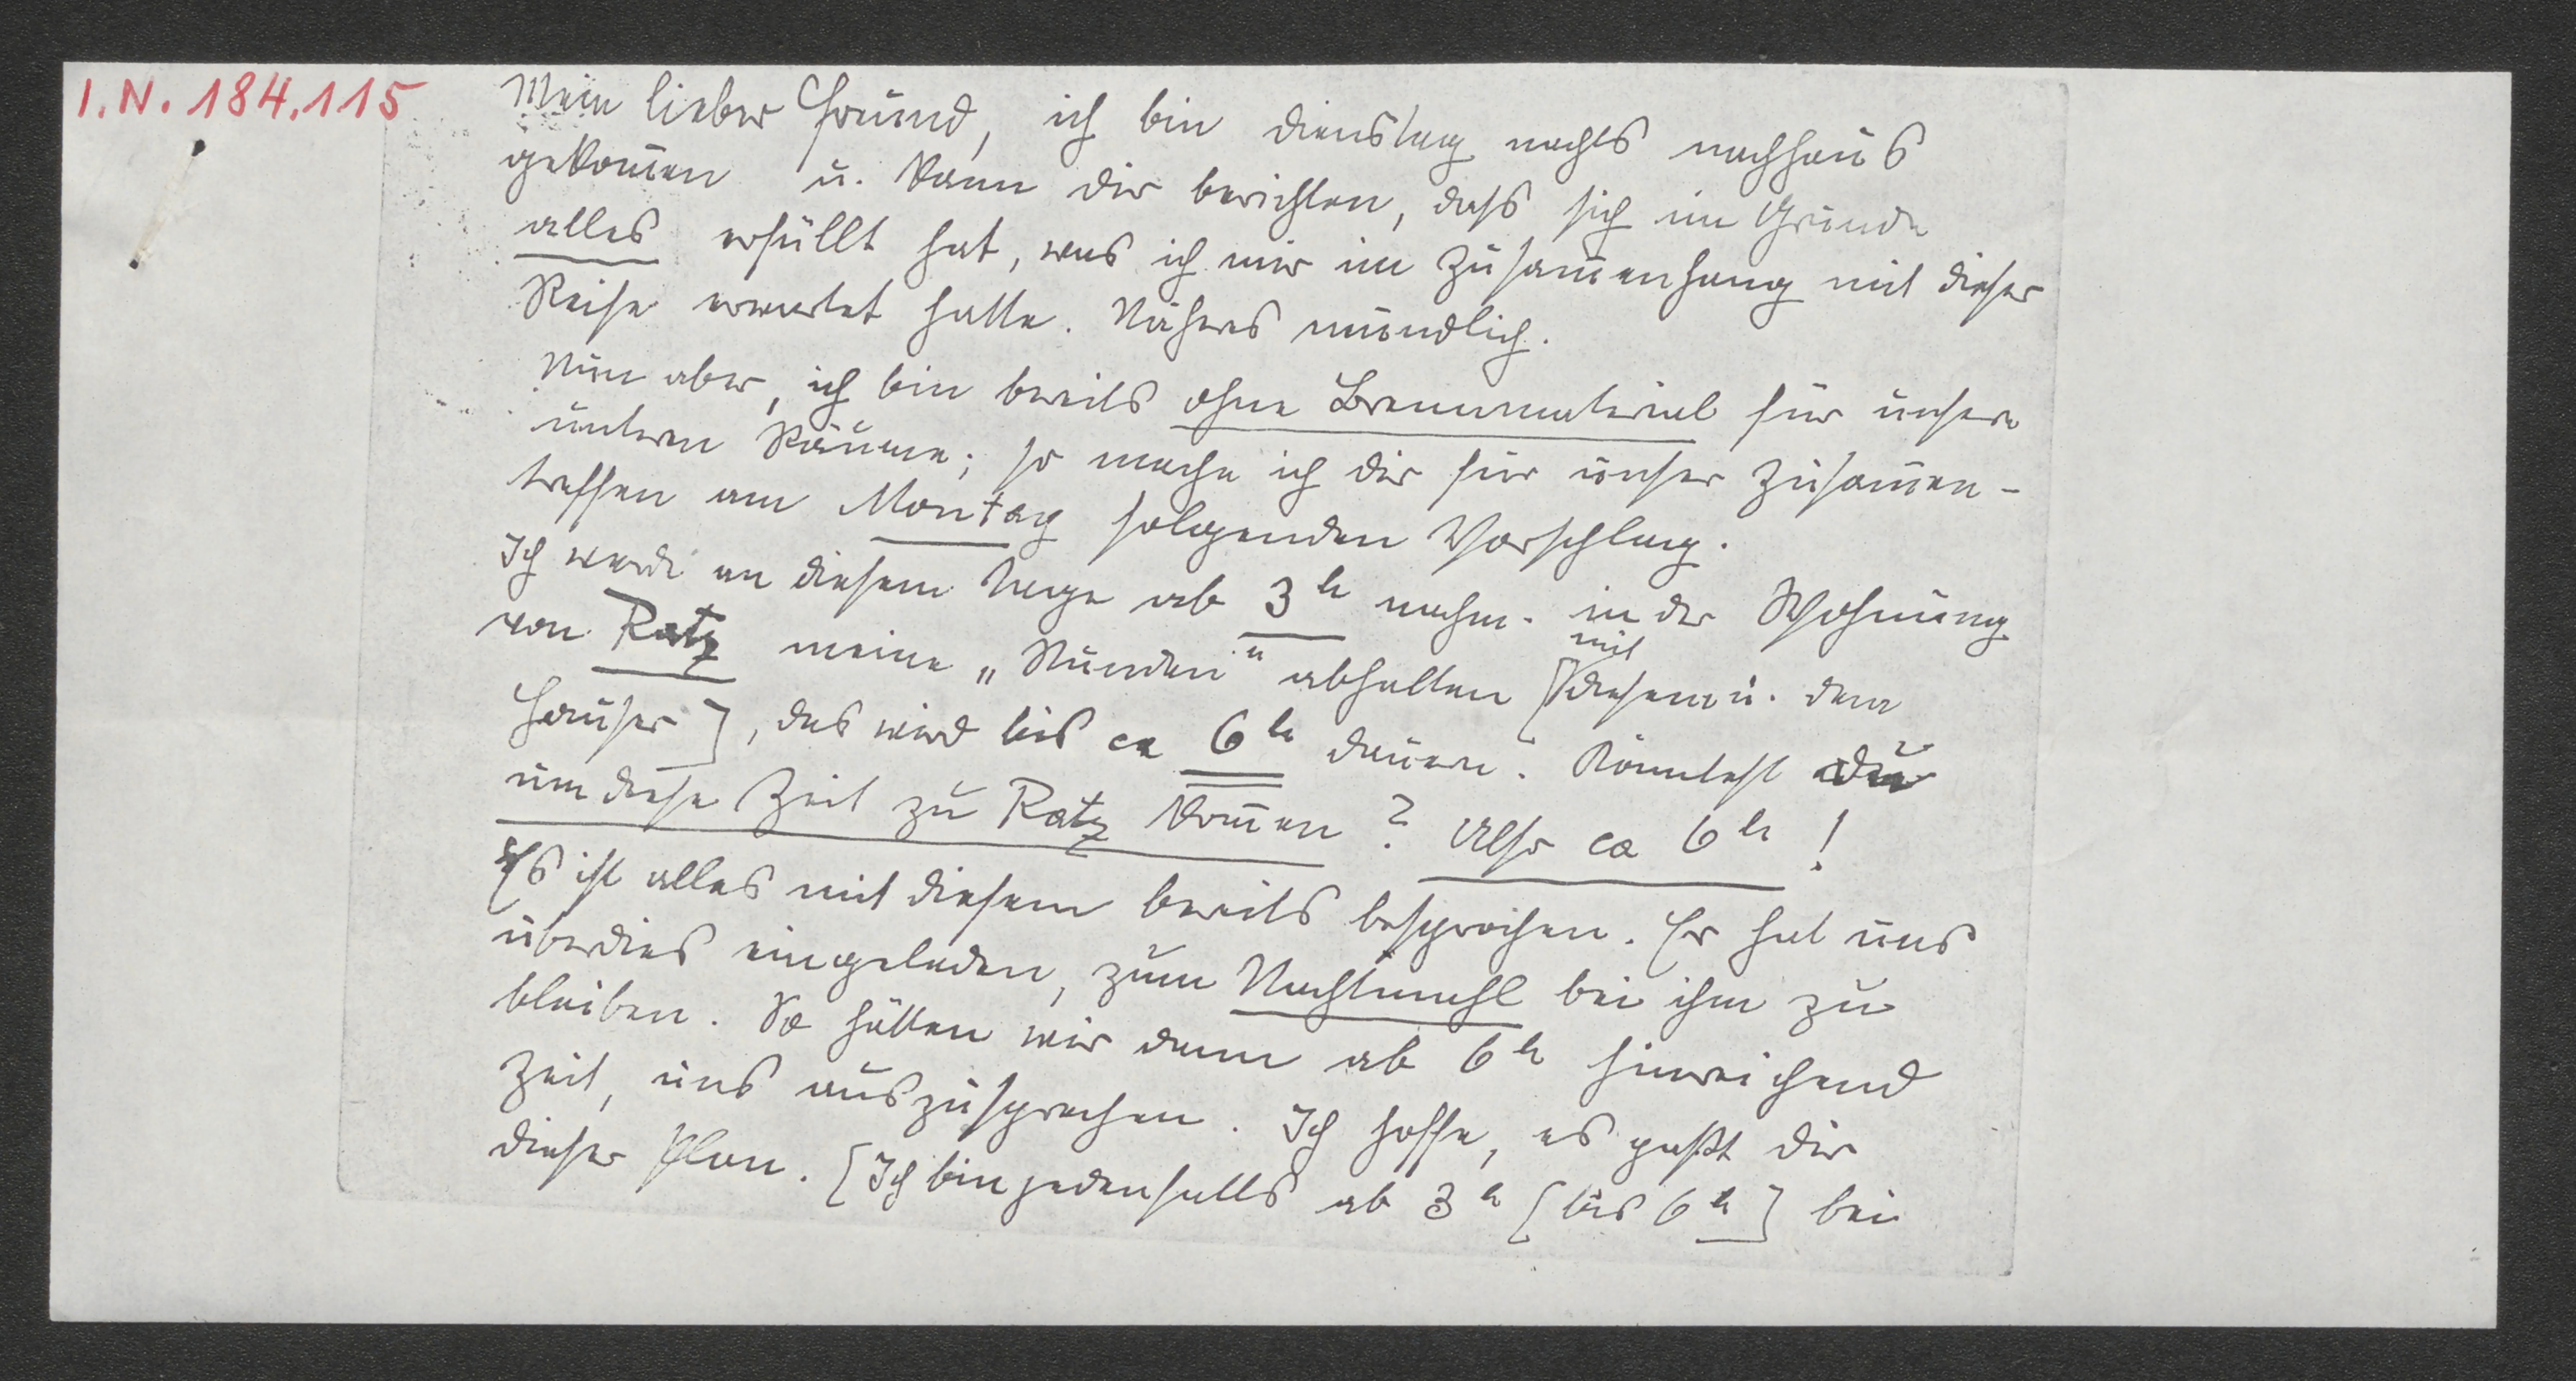 I.N. 184.115
Mein lieber Freund, ich bin dienstag nachts nachhaus
gekom̄en u. kann dir berichten, dass sich im Grunde
alles erfüllt hat, was ich mir im Zusam̄enhang mit dieser
Reise erwartet hatte. Näheres mündlich.
Nun aber, ich bin bereits ohne Brennmaterial für unsere
unteren Räume; so mache ich dir für unser Zusam̄en-
treffen am Montag folgenden Vorschlag.
Ich werde an diesem Tage ab 3h nachm. in der Wohnung
von Ratz meine „Stunden" abhalten [mit diesem u. dem
Hauser], das wird bis ca 6h dauern. Könntest du
um diese Zeit zu Ratz kom̄en? Also ca 6h!
Es ist alles mit diesem bereits besprochen. Er hat uns
überdies eingeladen, zum Nachtmahl bei ihm zu
bleiben. So hätten wir dann ab 6h hinreichend
Zeit, uns auszusprechen. Ich hoffe, es paßt dir
dieser Plan. [Ich bin jedenfalls ab 3h [bis 6h] bei